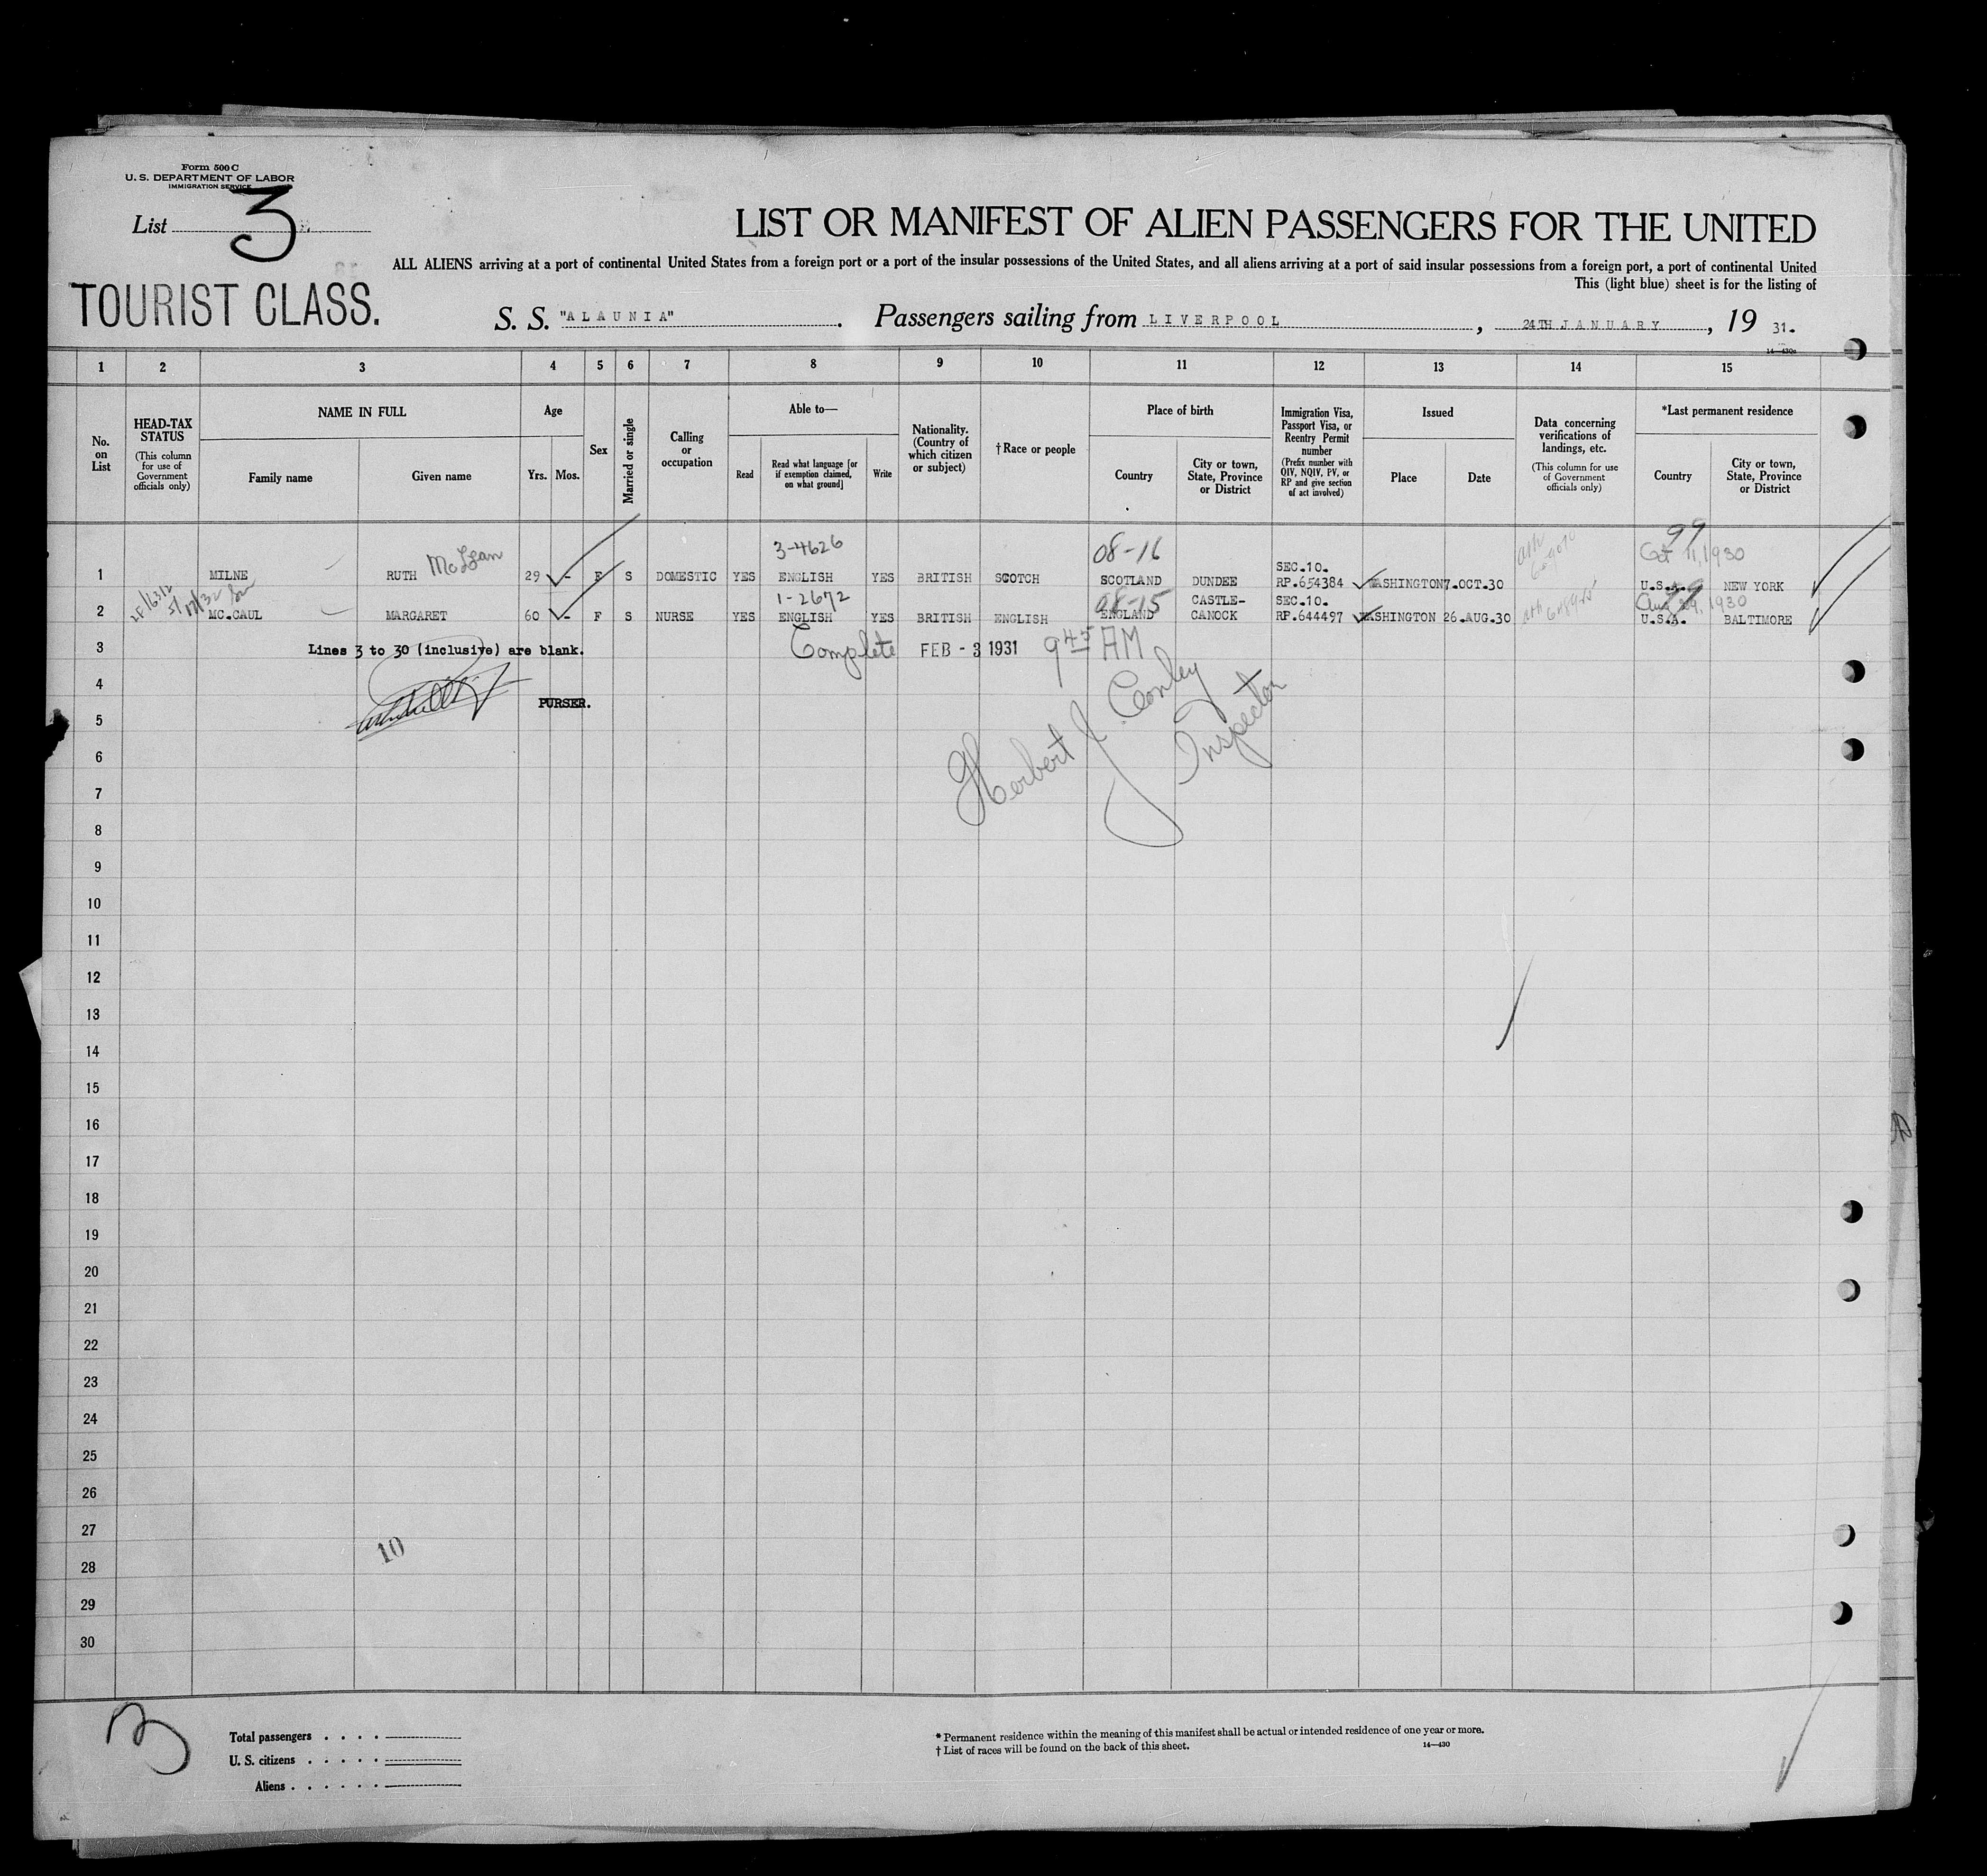 Form 500 C
U. S. DEPARTMENT OF LABOR
IMMIGRATION SERVICE
List 3
LIST OR MANIFEST OF ALIEN PASSENGERS FOR THE UNITED
ALL ALIENS arriving at a port of continental United States from a foreign port or a port of the insular possessions of the United States, and all aliens arriving at a port of said insular possessions from a foreign port, a port of continental United
This (light blue) sheet is for the listing of
TOURIST CLASS.
S. S. "ALAUNIA". Passengers sailing from LIVERPOOL, 24TH JANUARY, 19 31.
14—430a
1 2 3 4 5 6 7 8 9 10 11 12 13 14 15
No. on List
HEAD-TAX STATUS
(This column for use of Government officials only)
NAME IN FULL
Family name
Given name
Age
Yrs. Mos.
Sex
Married or single
Calling or occupation
Able to—
Read
Read what language [or if exemption claimed, on what ground]
Write
Nationality. (Country of which citizen or subject)
† Race or people
Place of birth
Country
City or town, State, Province or District
Immigration Visa, Passport Visa, or Reentry Permit number
(Prefix number with QIV, NQIV, PV, or RP and give section of act involved)
Issued
Place
Date
Data concerning verifications of landings, etc.
(This column for use of Government officials only)
*Last permanent residence
Country
City or town, State, Province or District
3-4626 08-16 99
McLean Oct 11, 1930
SEC.10.
1 MILNE RUTH 29 - F S DOMESTIC YES ENGLISH YES BRITISH SCOTCH SCOTLAND DUNDEE RP.654384 WASHINGTON 7.OCT.30 U.S.A. NEW YORK
1-2672 08-15 CASTLE- SEC.10. 99 Aug 29, 1930
2 MC.CAUL MARGARET 60 - F S NURSE YES ENGLISH YES BRITISH ENGLISH ENGLAND CANOCK RP.644497 WASHINGTON 26.AUG.30 U.S.A. BALTIMORE
3 Lines 3 to 30 (inclusive) are blank. Complete FEB - 3 1931 9 45 AM
4
PURSER.
Herbert J. Conley
Inspector
5
6
7
8
9
10
11
12
13
14
15
16
17
18
19
20
21
22
23
24
25
26
27
10
28
29
30
3
Total passengers . . . .
U. S. citizens . . . . .
Aliens . . . . . .
* Permanent residence within the meaning of this manifest shall be actual or intended residence of one year or more.
† List of races will be found on the back of this sheet.
14—430